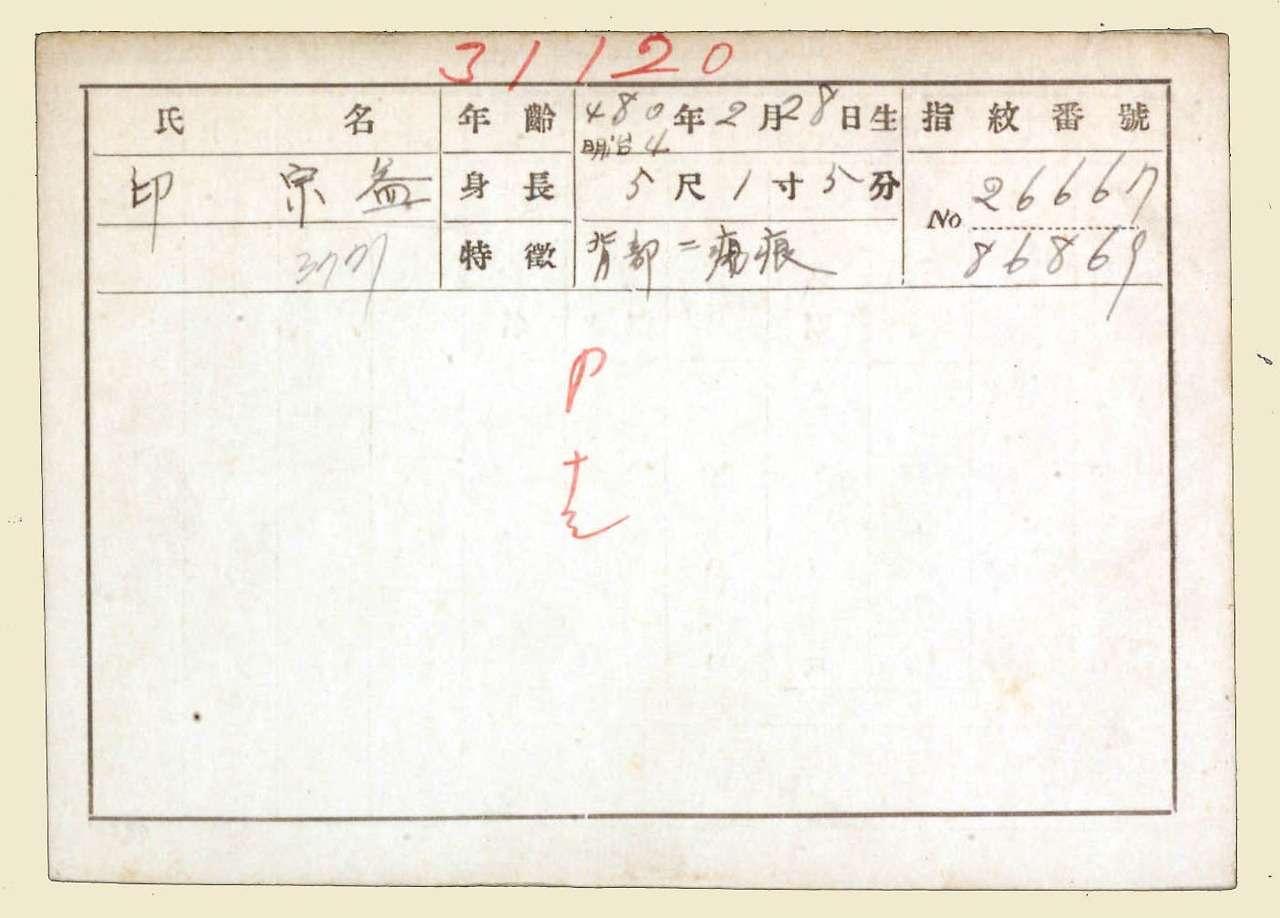 31120
氏 名 年齡 480年2月28日生 指紋番號
明治4
印 宗益 身長 5尺1寸5分 No 26667
86869
特徵 背部ニ瘍痕
P